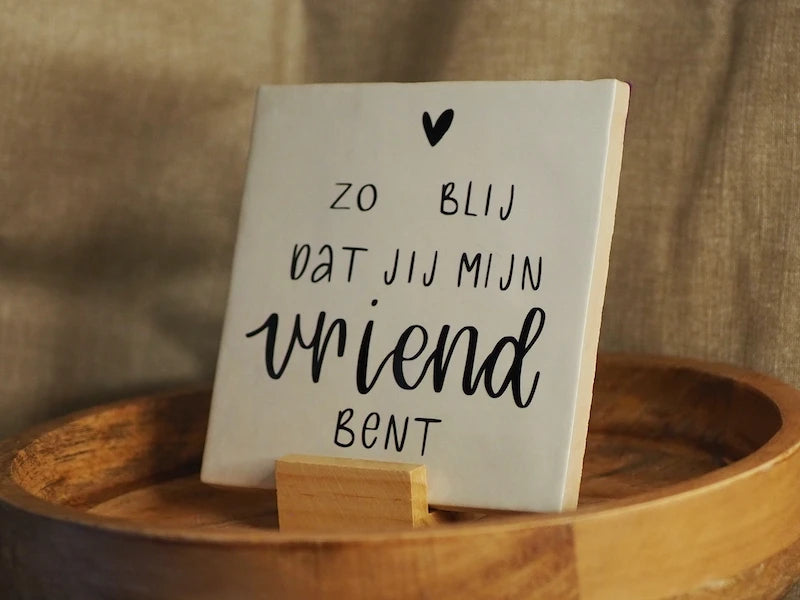 ZO BLIJ
DAT JIJ MIJN
vriend
BENT